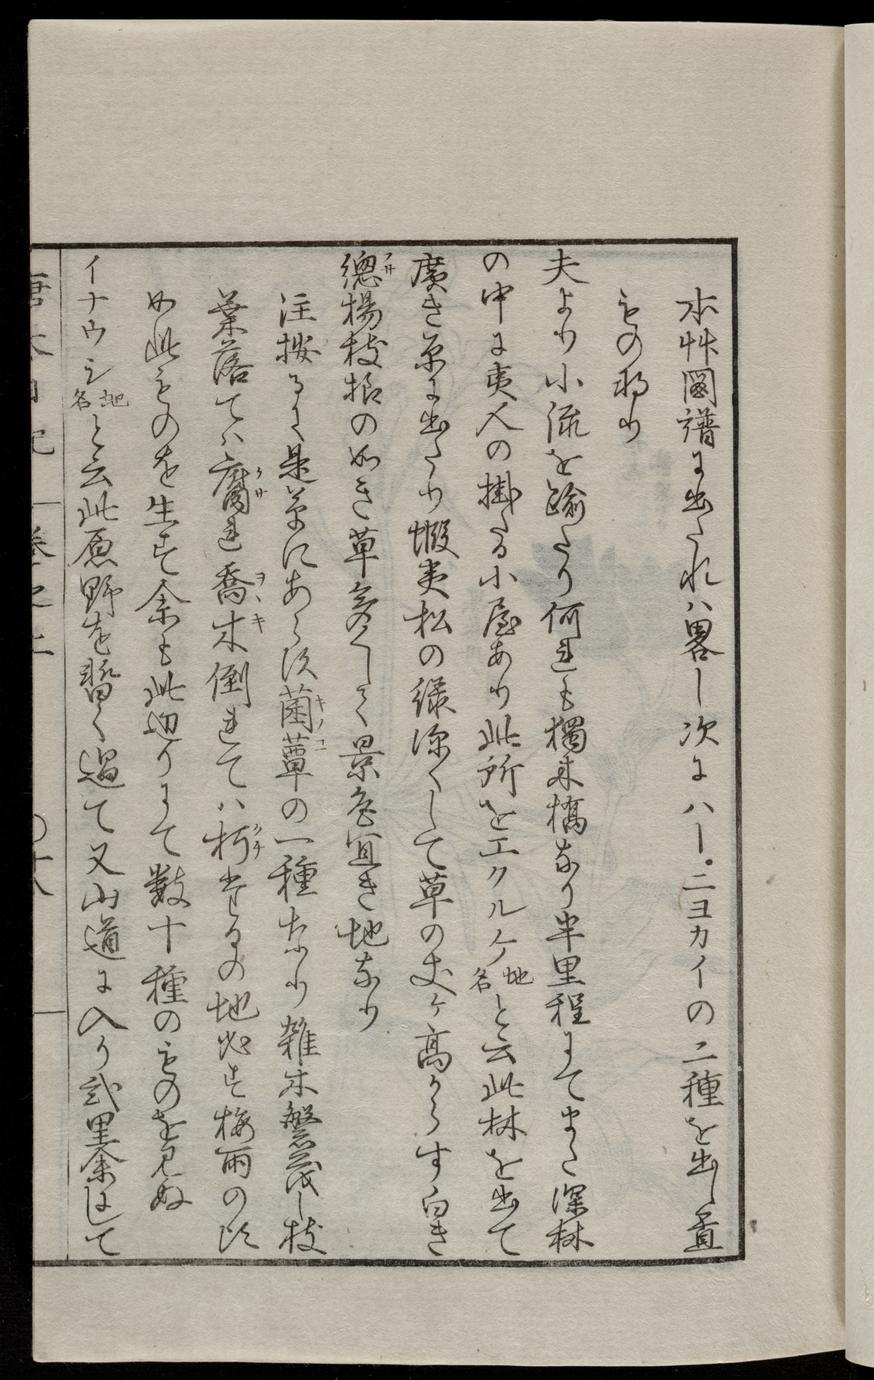 本艸圖譜に出たれハ畧し次にハー。ニヨカイの二種を出し置
もの也
夫より小流を踰たり何れも獨木橋なり半里程にてまた深林
の中に夷人の掛たる小屋あり此所をエクルケ地名と云此林を出て
廣き原に出たり蝦夷松の緑深くして草の丈ケ高からす白き
總楊枝抔の如き草多くして景色宜き地なり
注按るに是草にあらす菌蕈の一種なり雑木繁茂し枝
葉落てハ腐れ喬木倒れてハ朽たるの地必す梅雨の比
如此ものを生す余も此辺りにて數十種のものを見ぬ
イナウシ地名と云此原野を暫く過て又山道に入り弐里余にして
唐太日記 巻之上 〇十八